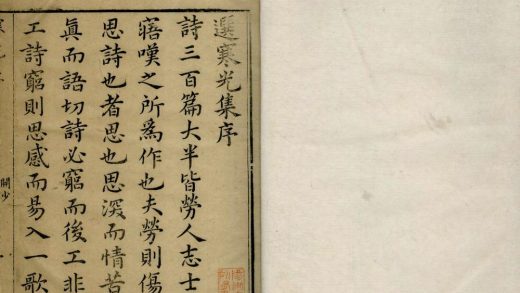 選寒光集序
詩三百篇大半皆勞人志士
寤嘆之所爲作也夫勞則傷
思詩也者思也思深而情苦
眞而語切詩必窮而後工非
工詩窮則思感而易入一歌